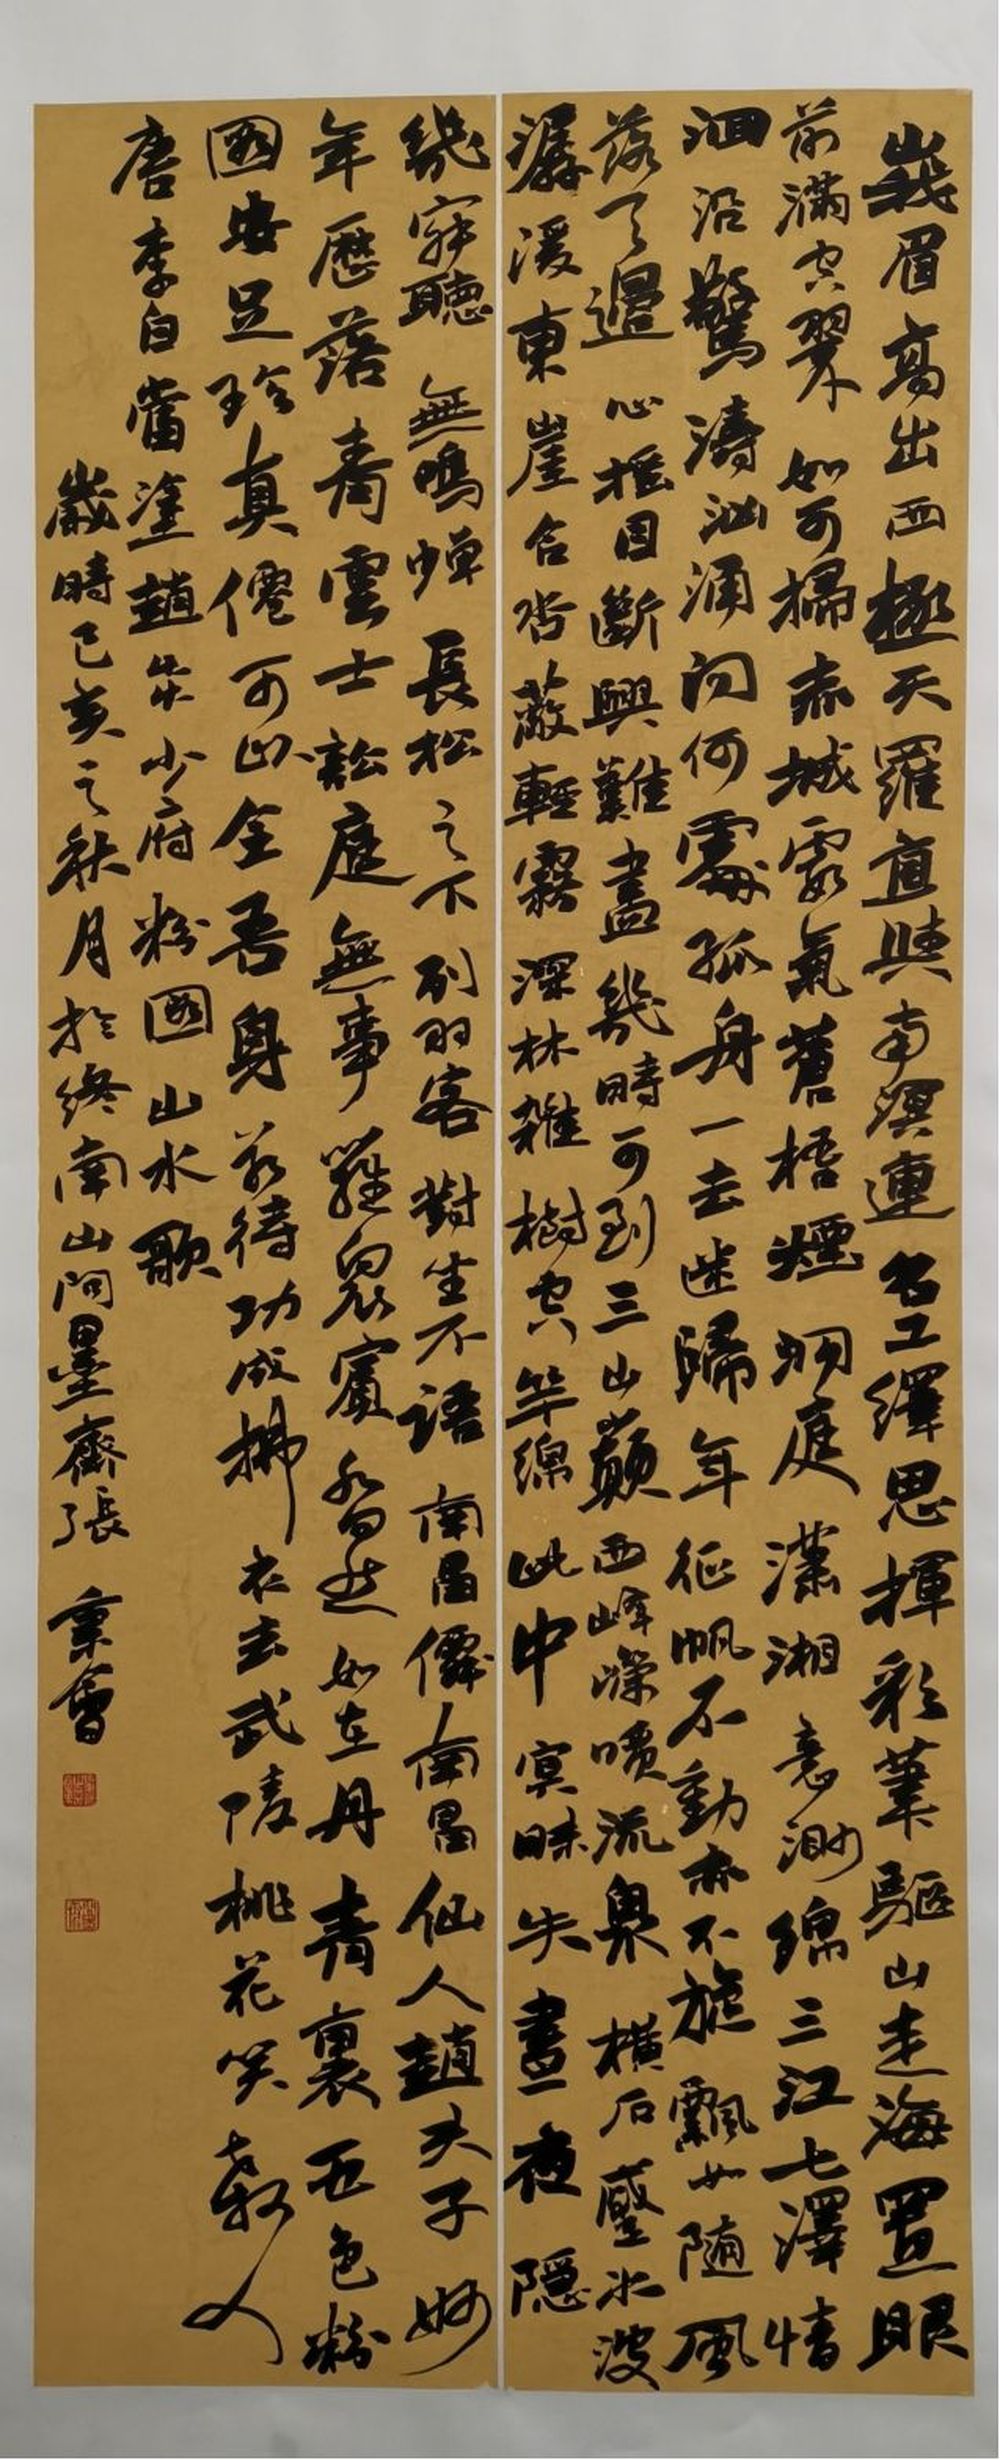 峩眉高出西極天羅直與南溟連名工繹思揮彩筆驅山走海置眼
前滿堂翠如可掃赤城霞氣蒼梧煙洞庭瀟湘意渺綿三江七澤情
洄沿驚濤洶涌向何處孤舟一去迷歸年征帆不動亦不旋飄如隨風
落天邊心搖目斷興難盡幾時可到三山巔西峰崢嶸噴流泉橫石蹙水波
潺湲東崖合沓蔽輕霧深林雜樹空芊綿此中冥昧失晝夜隱
幾寂聽無鳴蟬長松之下列羽客對坐不語南昌僊人南昌仙人趙夫子妙
年歷落青雲士訟庭無事羅衆賓杳然如在丹青裏五色粉
圖安足珍真僊可以全吾身若待功成拂衣去武陵桃花笑殺人
唐李白當塗趙炎少府粉圖山水歌
歲時己亥之秋月於終南山問墨齋張秉會